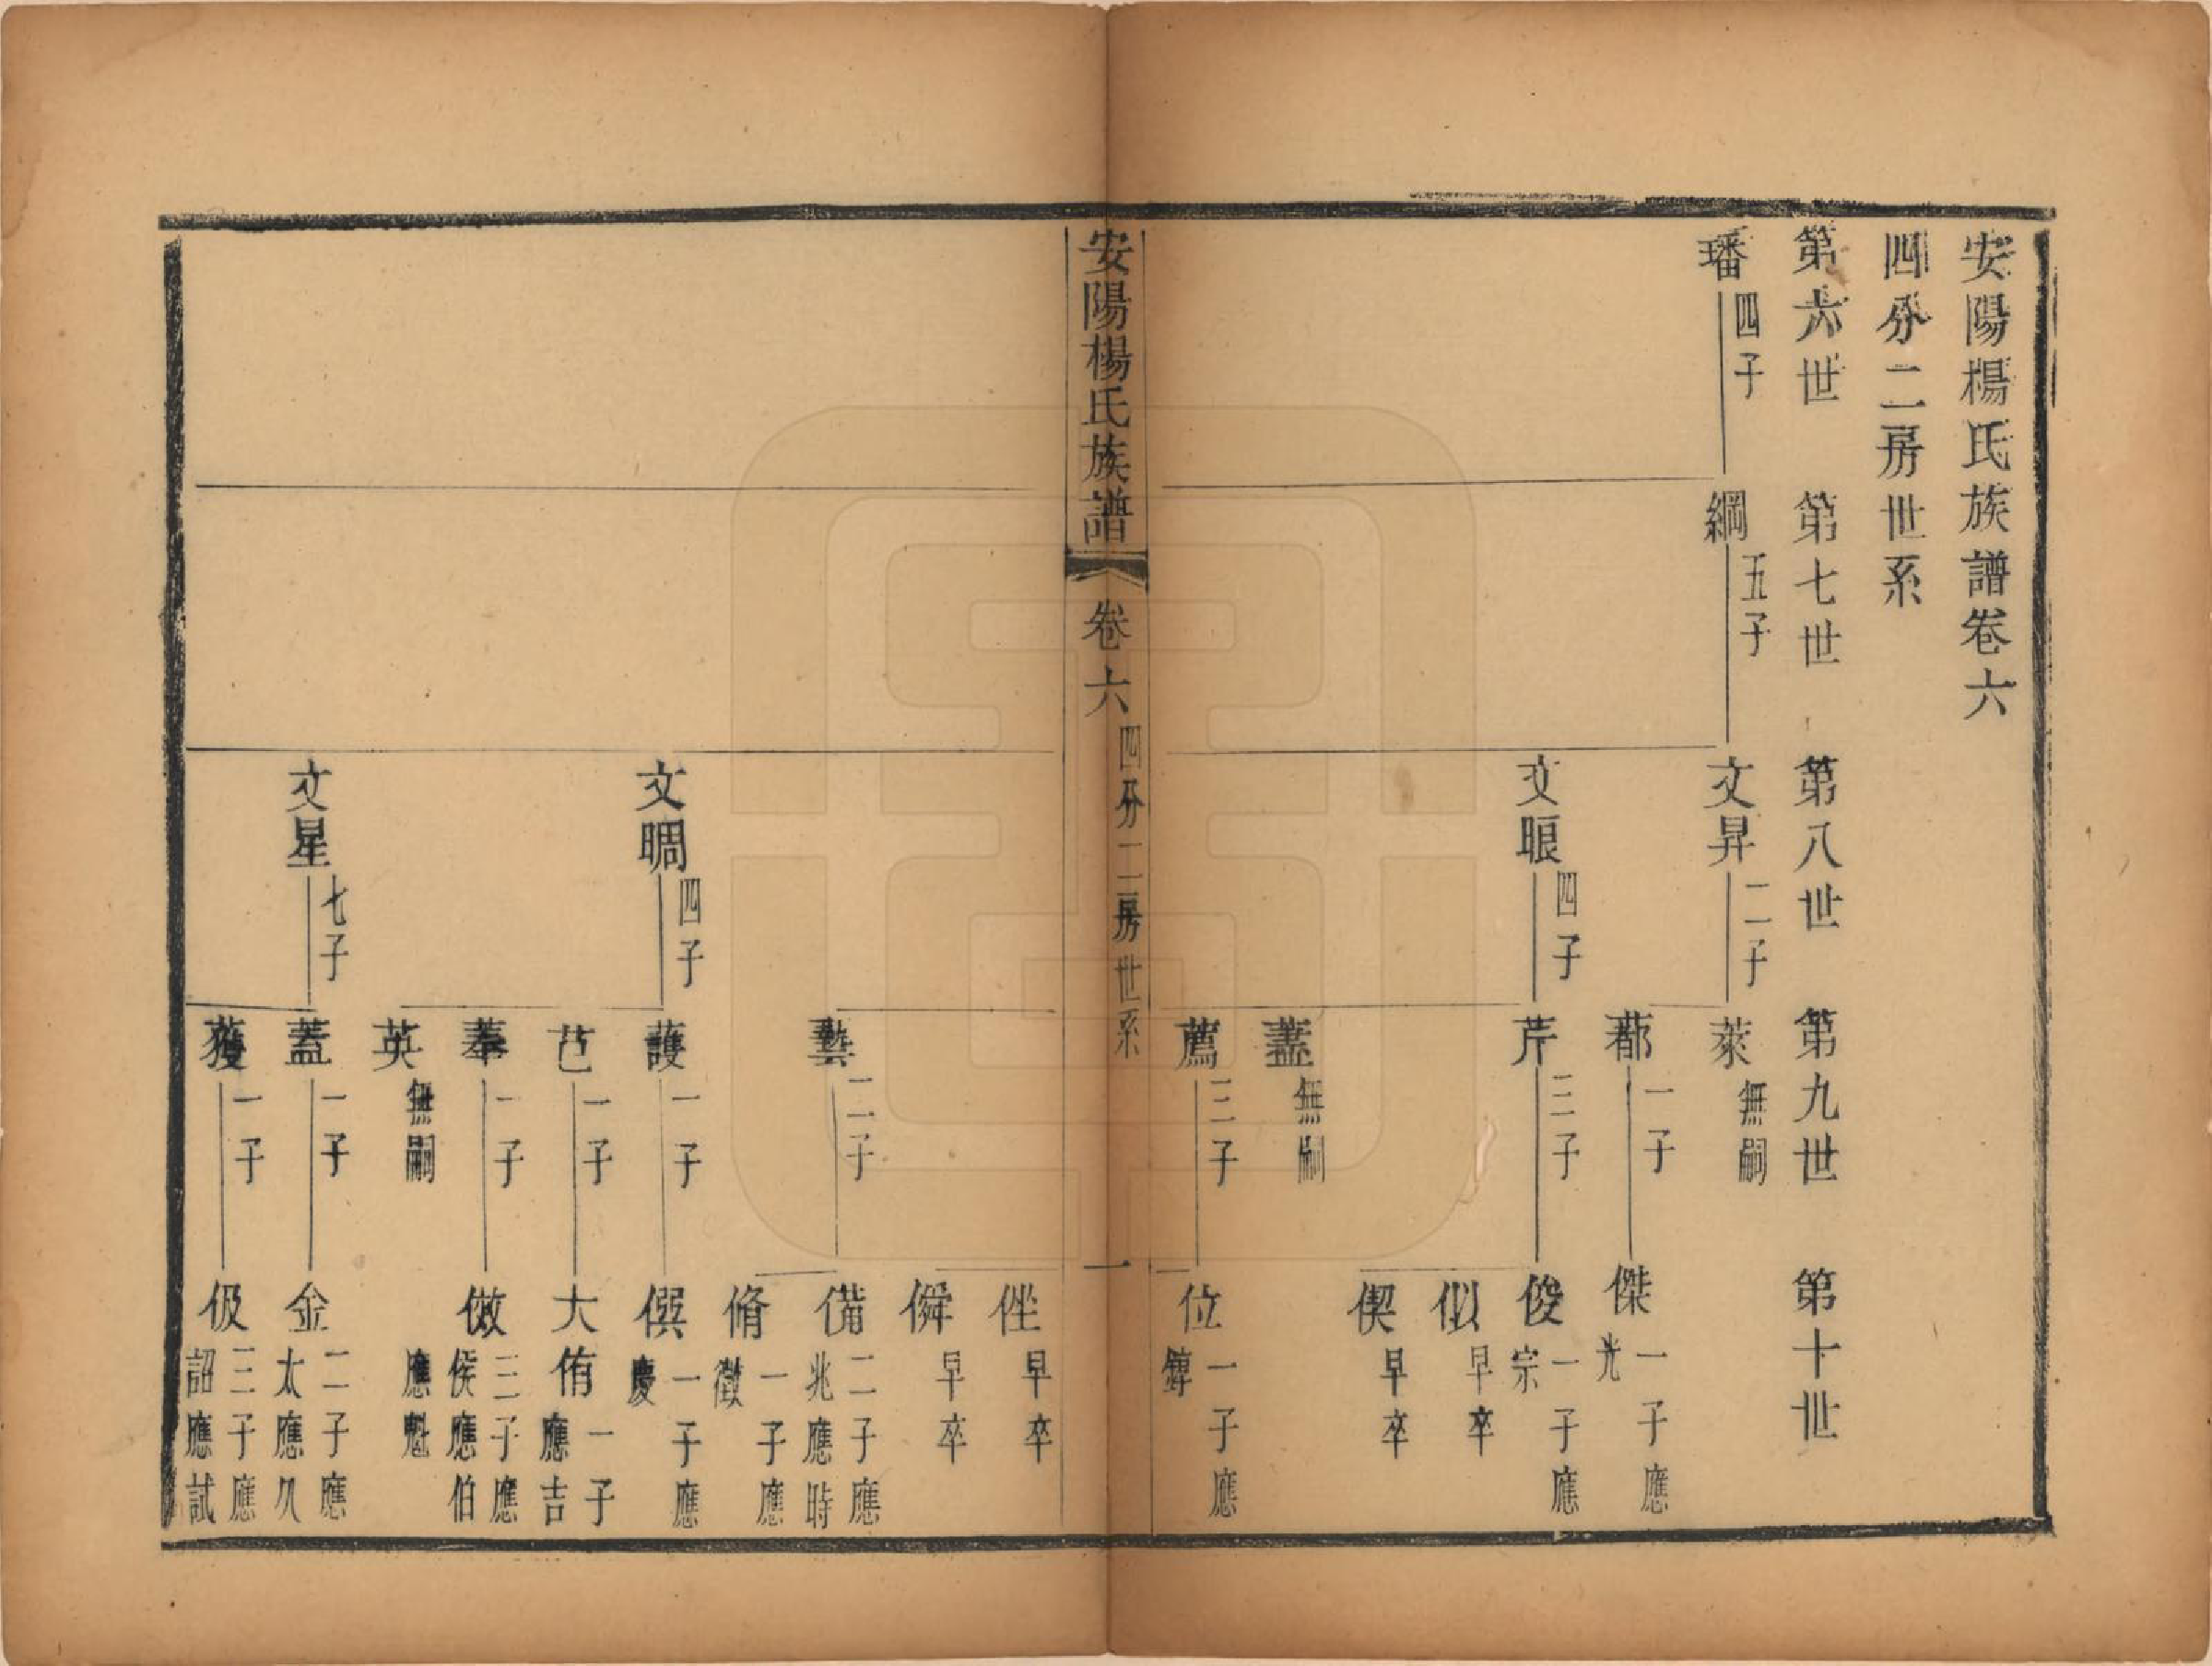 安陽楊氏族譜卷六
四分二房世系
第六世 第七世 第八世 第九世 第十世
璠 四子 綱 五子 文昇 二子 萊 無嗣
蕃 一子 傑 一子應光
文眼 四子 芹 三子 俊 一子應宗
似 早卒
偰 早卒
藎 無嗣
薦 三子 位 一子應鐸
安陽楊氏族譜 卷六 四分二房世系 一
侳 早卒
僢 早卒
藝 二子 備 二子應兆應時
脩 一子應徵
文晭 四子 護 一子 僎 一子應慶
芑 一子 大侑 一子應吉
菶 一子 傚 三子應侯應伯應魁
英 無嗣
文星 七子 蓋 一子 金 二子應太應久
獲 一子 伋 三子應詔應試